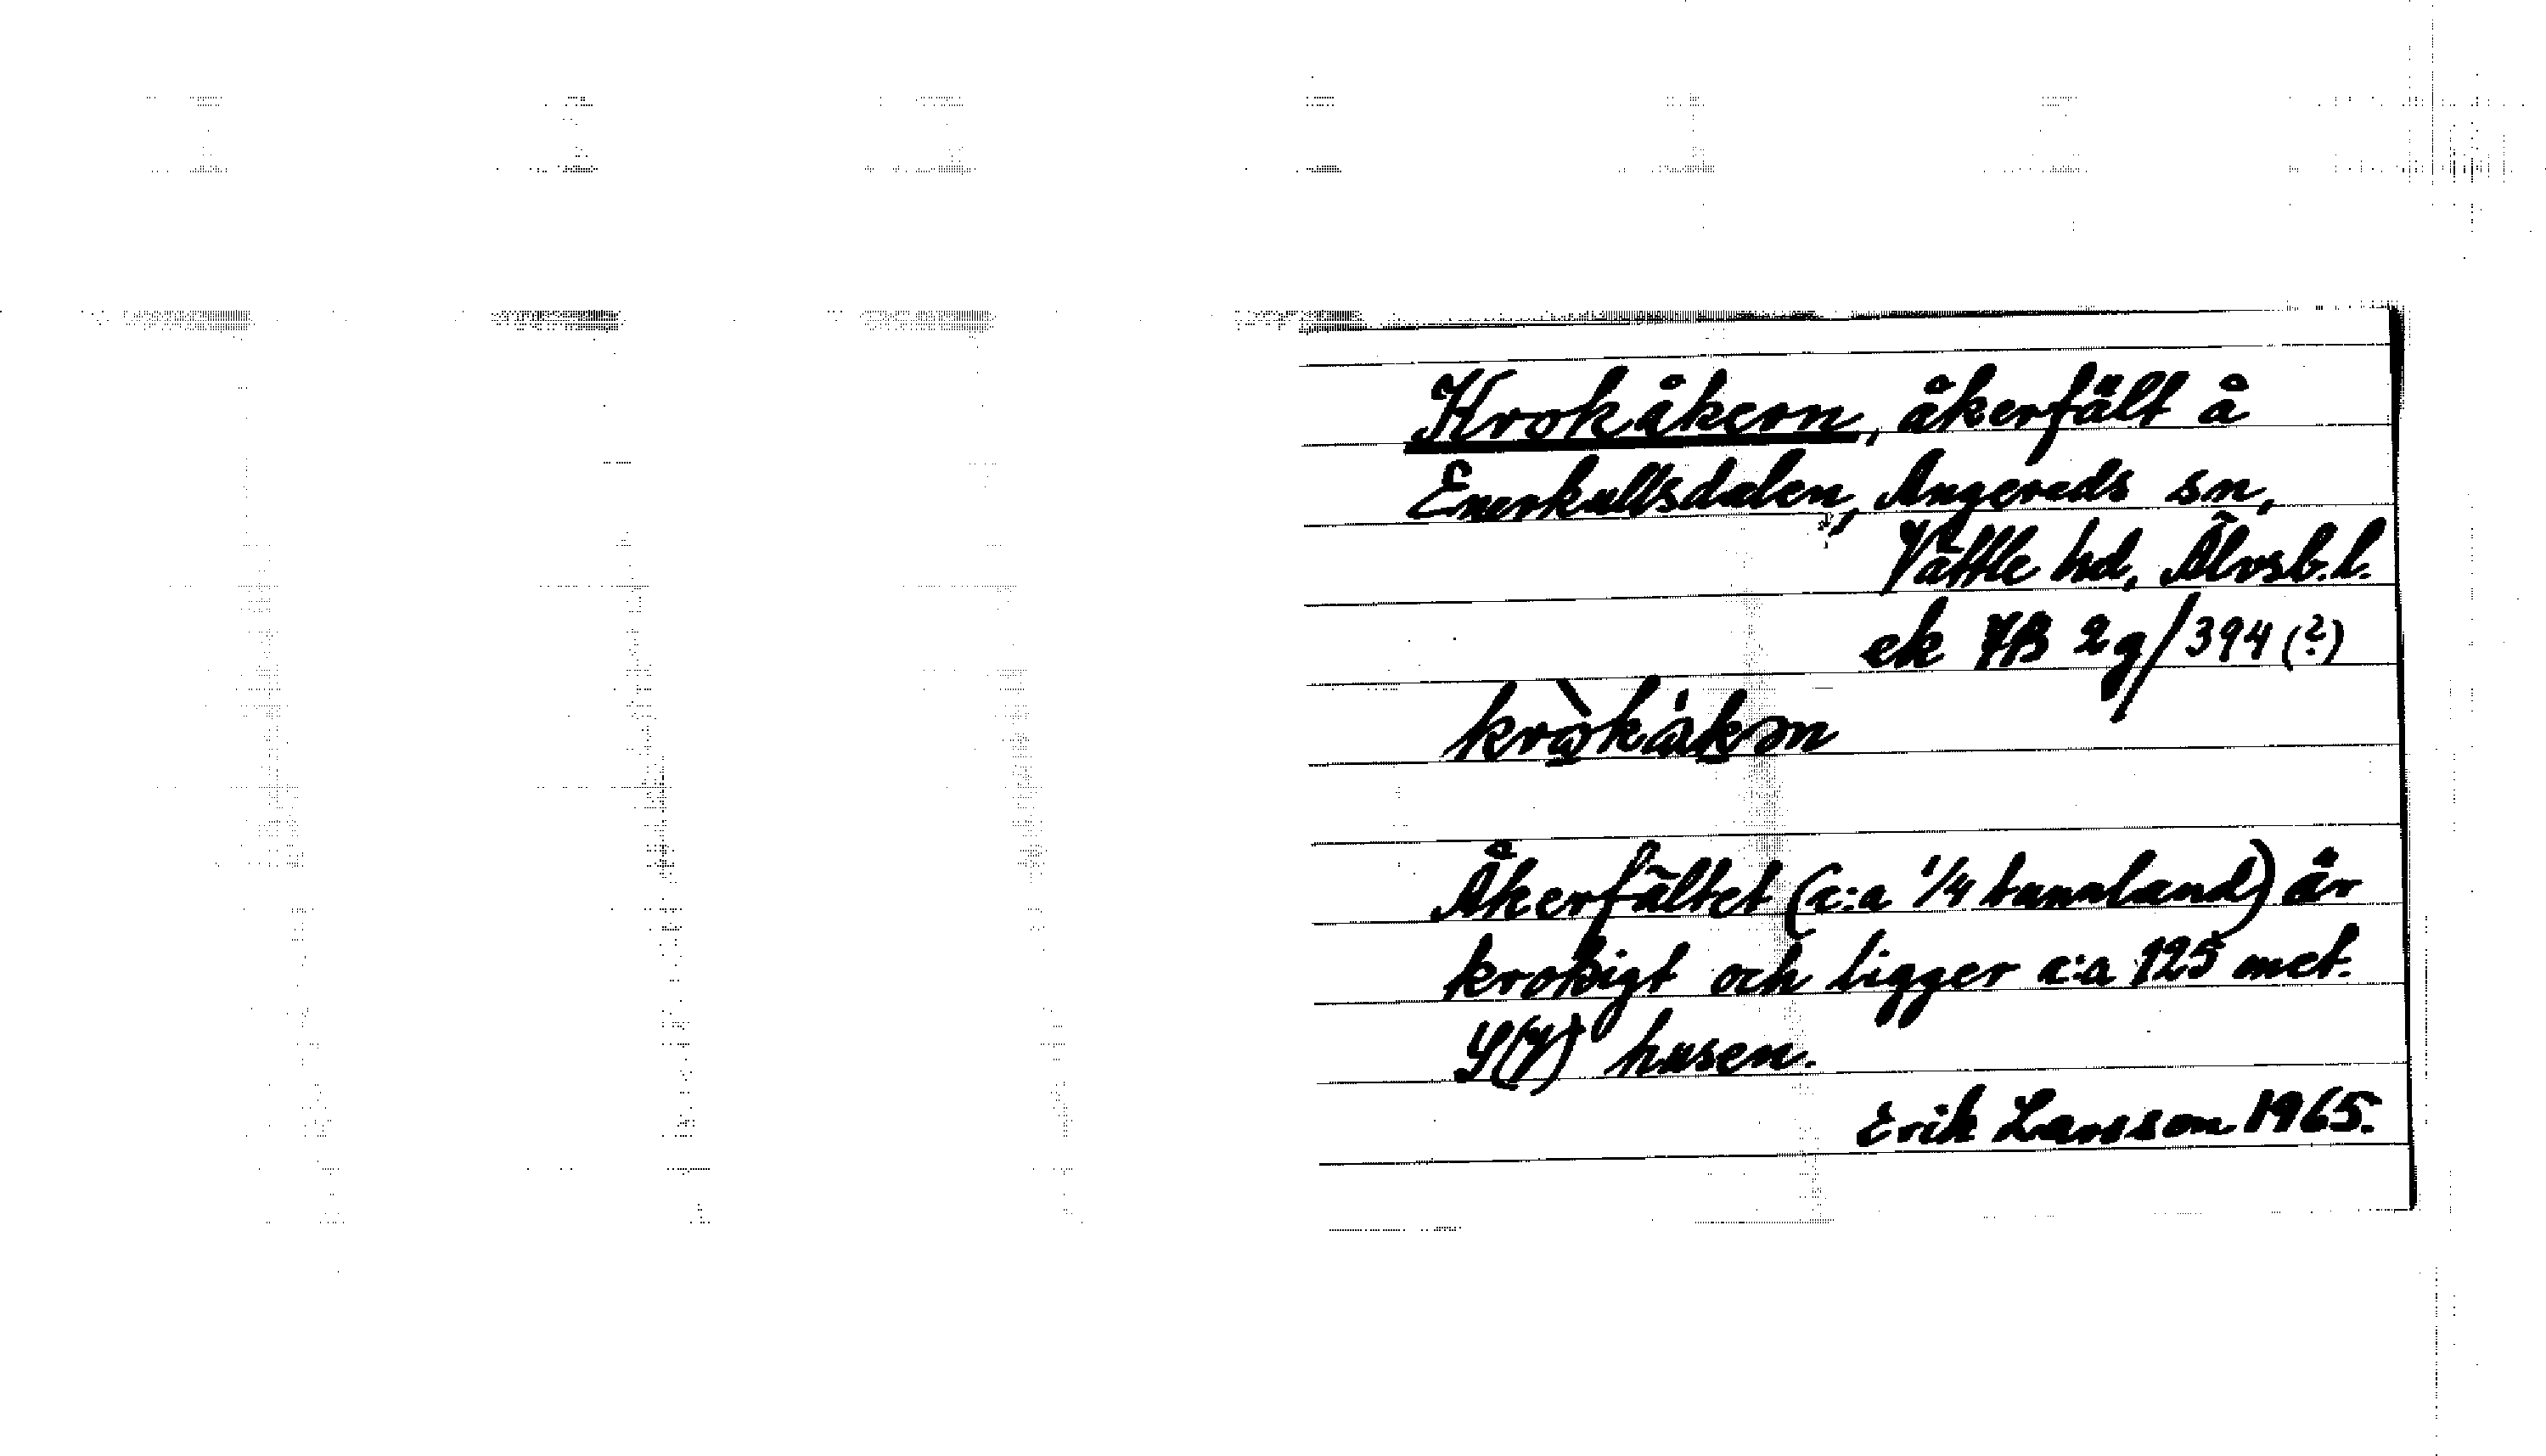 Krokåkern, åkerfält å
Enerkullsdalen, Angereds sn,
Vättle hd, Älvsb.l.
ek 7B 2g/394 (?)
kròkåkən
Åkerfältet (c:a 1/4 tunnland) är
krokigt och ligger c:a 125 met.
S(V) husen.
Erik Larsson 1965.